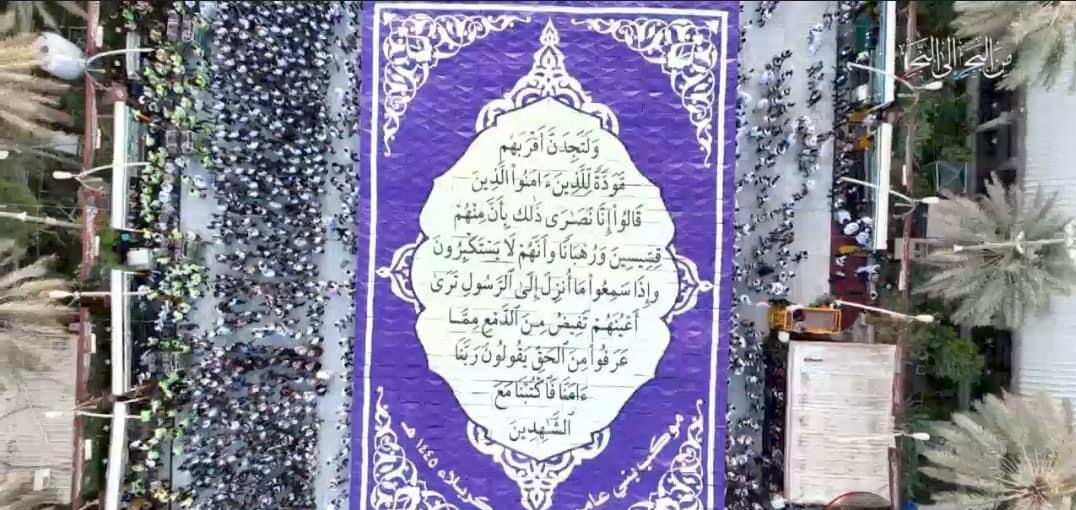 من البحر الى النحر
وَلَتَجِدَنَّ أَقْرَبَهُم
مَّوَدَّةً لِّلَّذِينَ ءَامَنُوا۟ الَّذِينَ
قَالُوٓا۟ إِنَّا نَصَٰرَىٰ ذَٰلِكَ بِأَنَّ مِنْهُمْ
قِسِّيسِينَ وَرُهْبَانًا وَأَنَّهُمْ لَا يَسْتَكْبِرُونَ
وَإِذَا سَمِعُوا۟ مَا أُنزِلَ إِلَى ٱلرَّسُولِ تَرَىٰٓ
أَعْيُنَهُمْ تَفِيضُ مِنَ ٱلدَّمْعِ مِمَّا
عَرَفُوا۟ مِنَ ٱلْحَقِّ يَقُولُونَ رَبَّنَا
ءَامَنَّا فَاكْتُبْنَا مَعَ
ٱلشَّٰهِدِينَ
موكب بني عامر
كربلاء ١٤٤٥ هـ